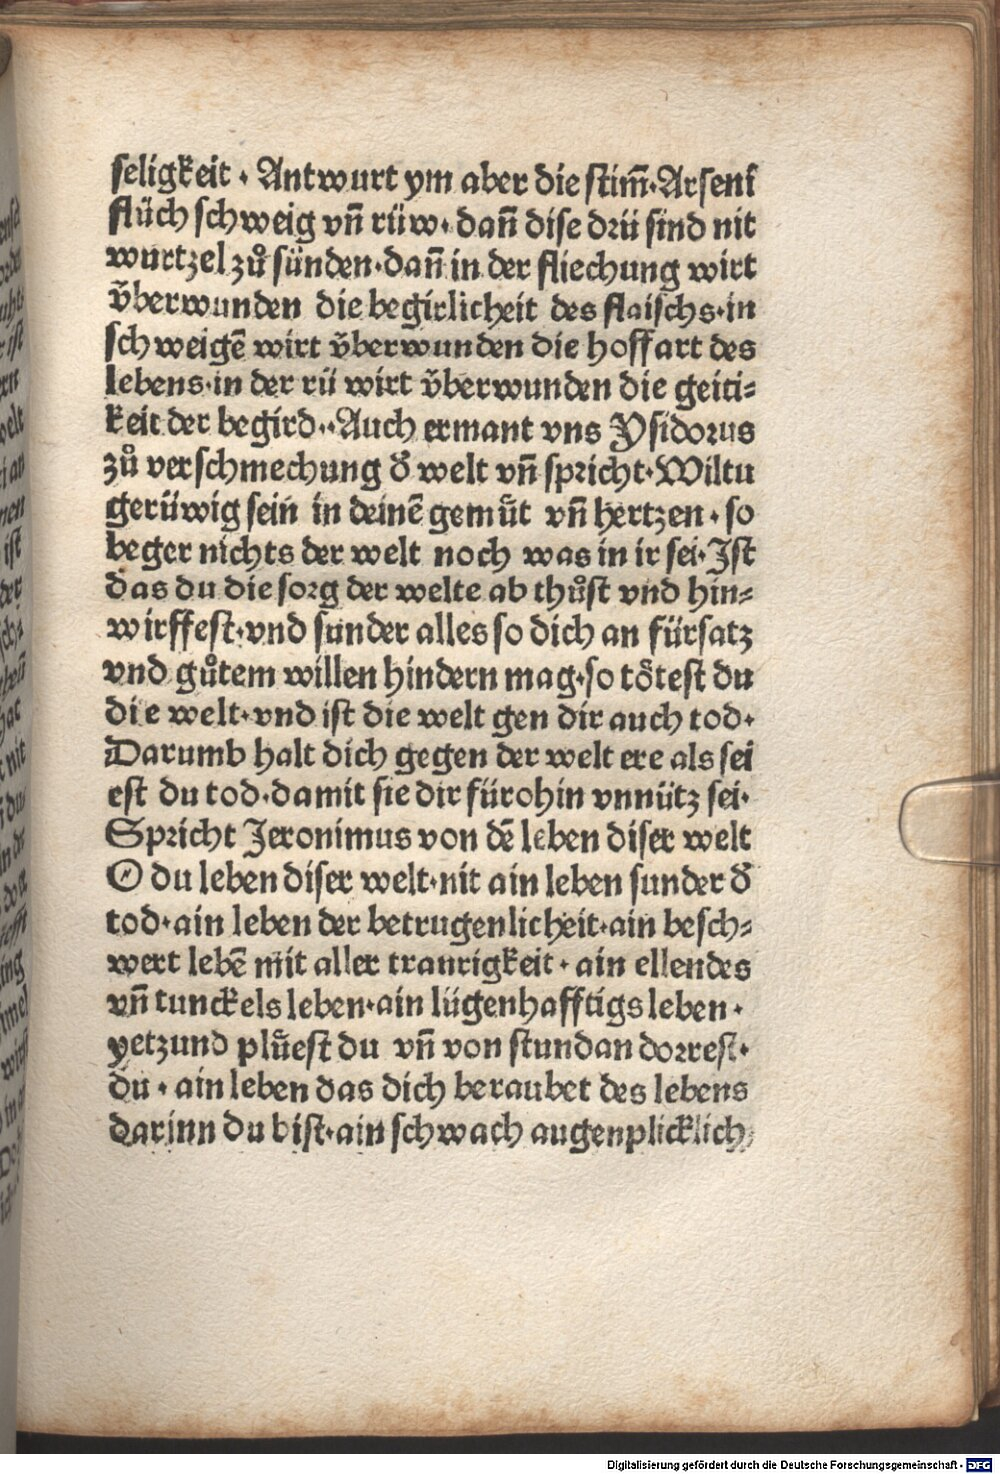 seligkeit · Antwurt ym aber die stim̃· Arseni
flüch schweig vn̄ rüw· dan̄ dise drü sind nit
wurtzel zů sünden· dan̄ in der fliechung wirt
v̈berwunden die begirlicheit des flaischs· in
schweigē wirt v̈berwunden die hoffart des
lebens· in der rü wirt v̈berwunden die geiti⸗
keit der begird·· Auch ermant vns Ysidorus
zů verschmechung d̕ welt vn̄ spricht· Wiltu
gerüwig sein in deinē gemüt vn̄ hertzen · so
beger nichts der welt noch was in ir sei· Ist
das du die sorg der welte ab thůst vnd hin⸗
wirffest· vnd sunder alles so dich an fürsatz
vnd gůtem willen hindern mag· so tötest du
die welt· vnd ist die welt gen dir auch tod·
Darumb halt dich gegen der welt ere als sei
est du tod· damit sie dir fürohin vnnütz sei·
Spricht Jeronimus von dē leben diser welt
O du leben diser welt· nit ain leben sunder d̕
tod· ain leben der betrugenlicheit· ain besch⸗
wert lebē mit aller traurigkeit · ain ellendes
vn̄ tunckels leben· ain lügenhafftigs leben ·
yetzund plüest du vn̄ von stundan dorrest·
du · ain leben das dich beraubet des lebens
darinn du bist· ain schwach augenplicklich
Digitalisierung gefördert durch die Deutsche Forschungsgemeinschaft - DFG